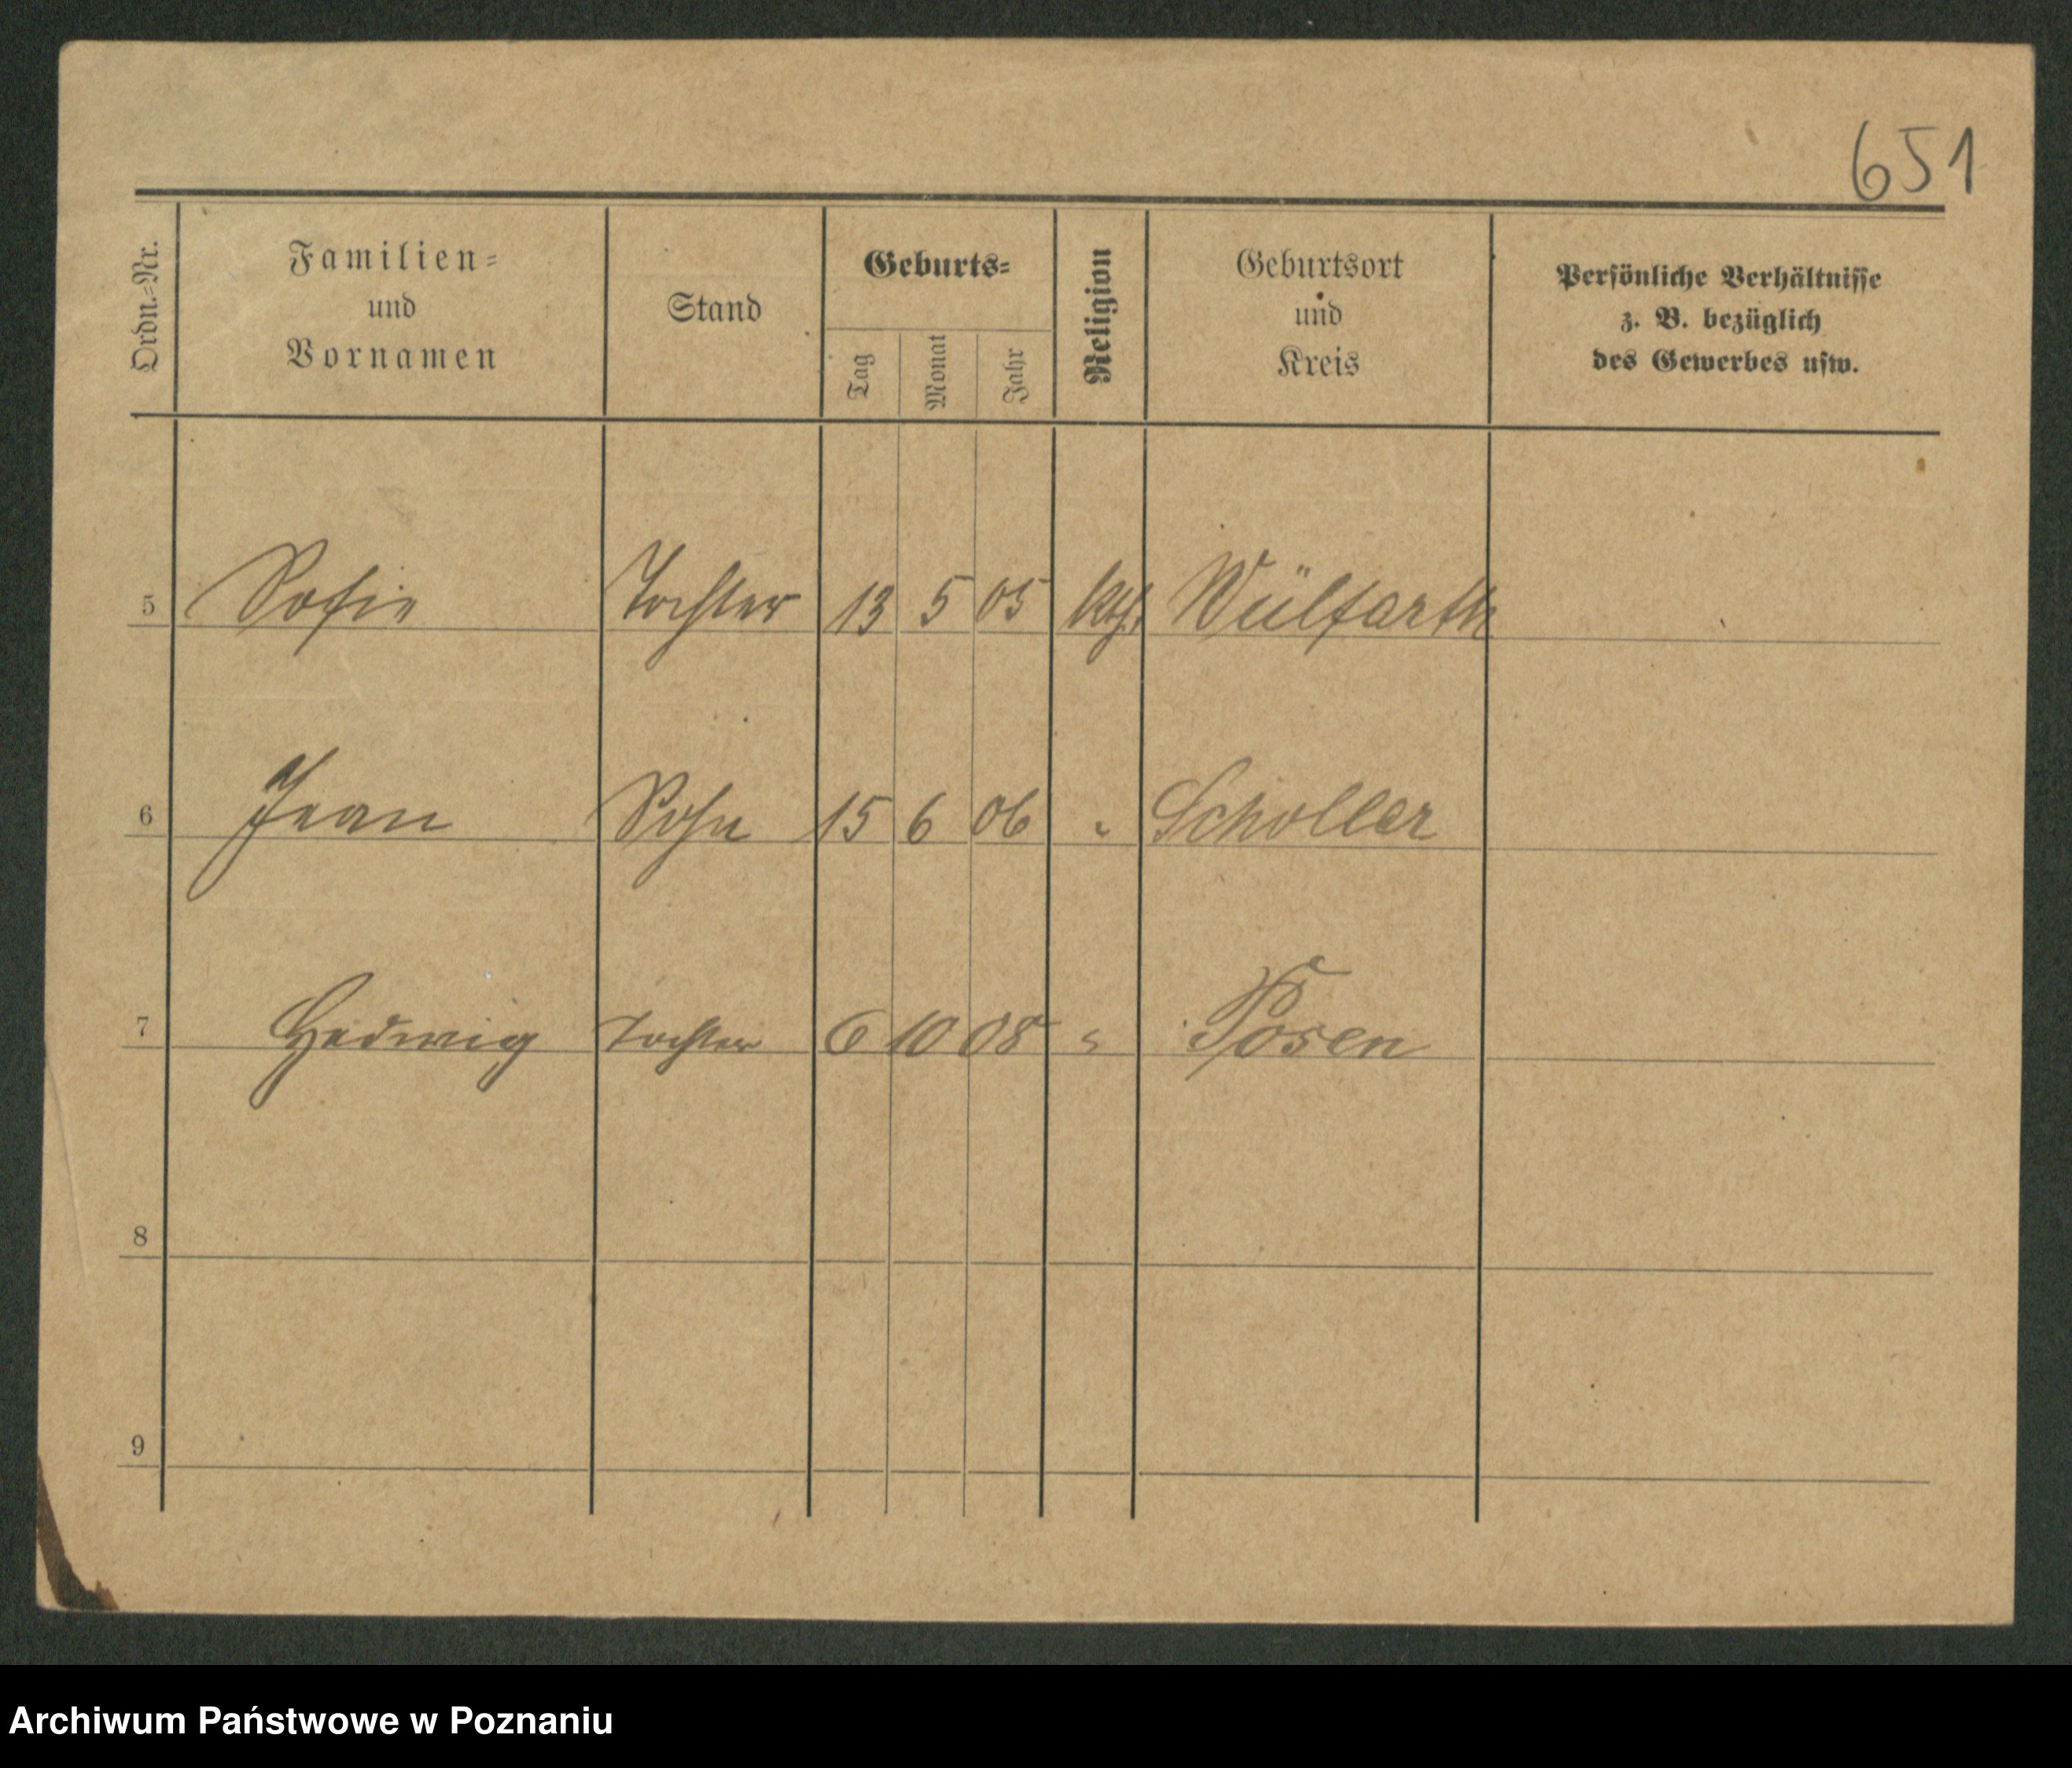 651
Ordn.=Nr.
Familien=
und
Vornamen
Stand
Geburts=
Tag
Monat
Jahr
Religion
Geburtsort
und
Kreis
Persönliche Verhältnisse
z. B. bezüglich
des Gewerbes usw.
5 Sofie Tochter 13 5 05 kth. Wülfarth
6 Jean Sohn 15 6 06 " Scholler
7 Hedwig Tochter 6 10 08 " Posen
8
9
Archiwum Państwowe w Poznaniu